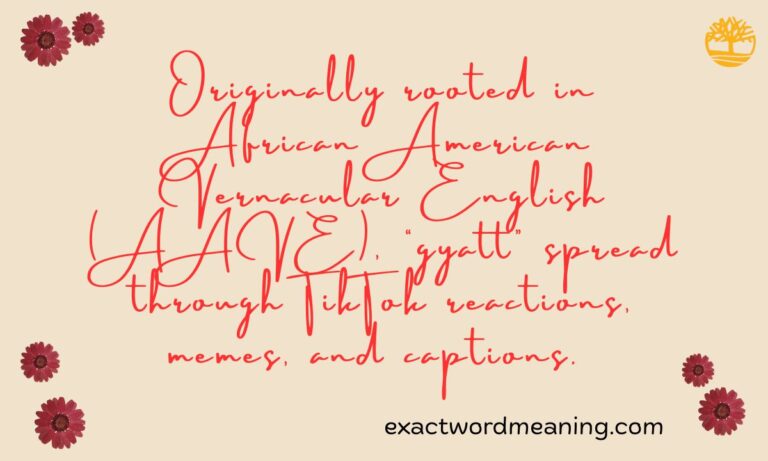 Originally rooted in
African American
Vernacular English
(AAVE), “gyatt” spread
through TikTok reactions,
memes, and captions.
exactwordmeaning.com